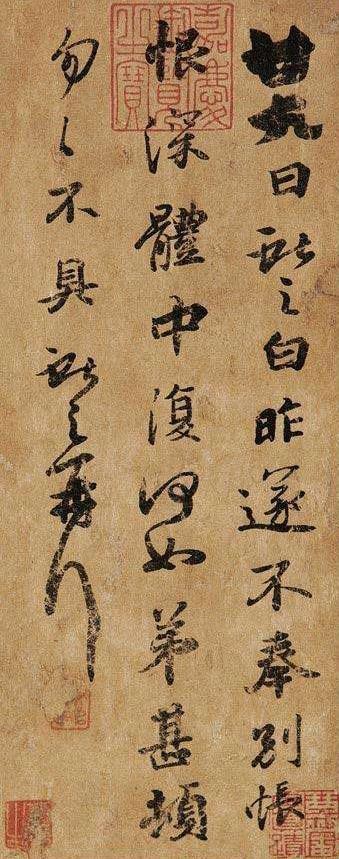 廿九日獻之白昨遂不奉別悵
恨深體中復何如弟甚頓
勿々不具獻之再拜